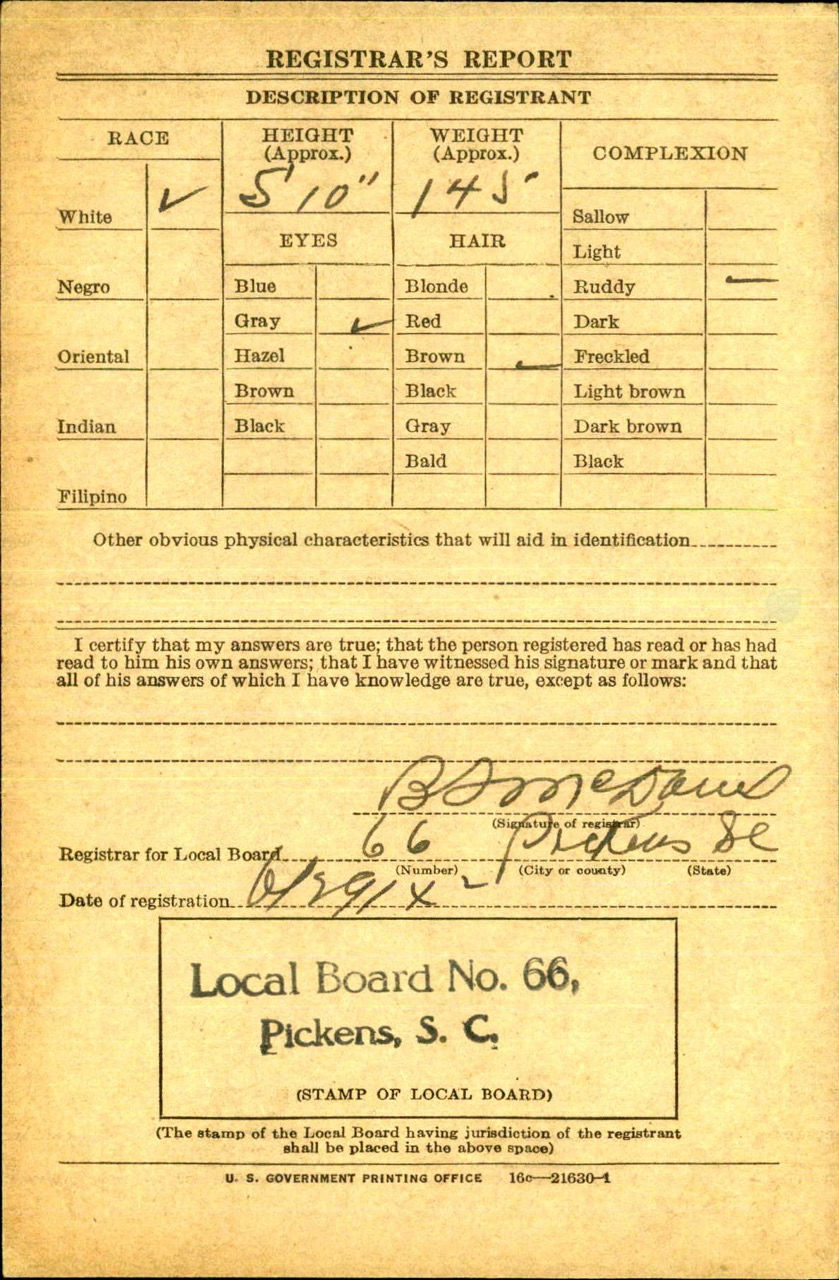 REGISTRAR'S REPORT
DESCRIPTION OF REGISTRANT
RACE
HEIGHT
(Approx.)
WEIGHT
(Approx.)
COMPLEXION
5' 10"
145
White ✓
EYES
HAIR
Sallow
Light
Negro
Blue
Blonde
Ruddy
Gray ✓
Red
Dark
Oriental
Hazel
Brown
Freckled
Brown
Black
Light brown
Indian
Black
Gray
Dark brown
Bald
Black
Filipino
Other obvious physical characteristics that will aid in identification
I certify that my answers are true; that the person registered has read or has had
read to him his own answers; that I have witnessed his signature or mark and that
all of his answers of which I have knowledge are true, except as follows:
(Signature of registrar)
Registrar for Local Board 66 Pickens SC
(Number) (City or county) (State)
Date of registration
Local Board No. 66,
Pickens, S. C.
(STAMP OF LOCAL BOARD)
(The stamp of the Local Board having jurisdiction of the registrant
shall be placed in the above space)
U. S. GOVERNMENT PRINTING OFFICE 16c—21630-1